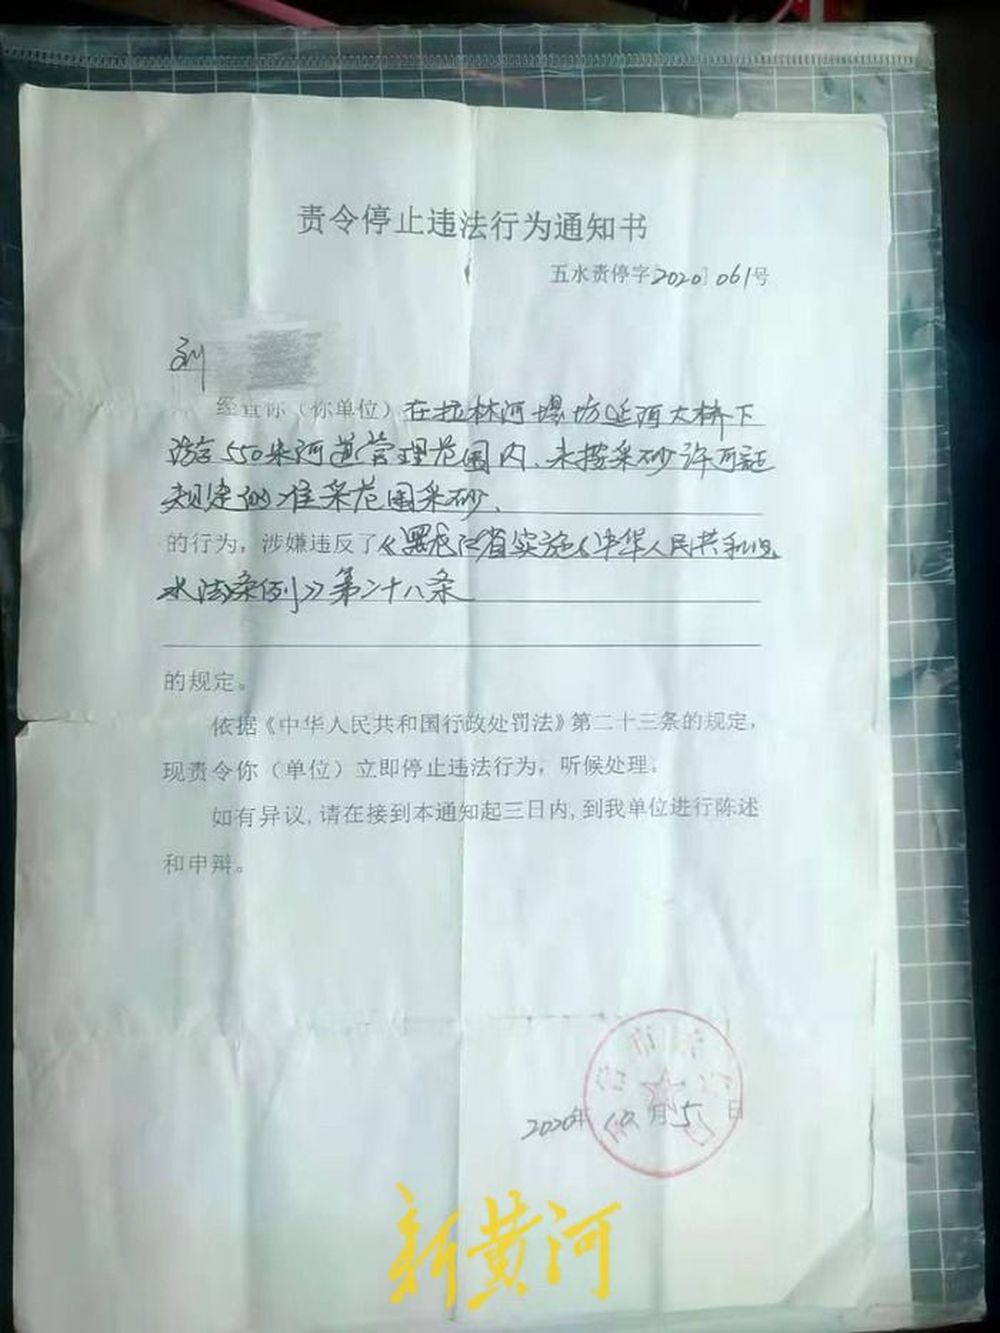 责令停止违法行为通知书
五水责停字[2020]061号
刘
经查你（你单位）在拉林河堤坊延河大桥下
游550米河道管理范围内、未按采砂许可证
规定的准采范围采砂、
的行为，涉嫌违反了《黑龙江省实施《中华人民共和国
水法》条例》第二十八条
的规定。
依据《中华人民共和国行政处罚法》第二十三条的规定，
现责令你（单位）立即停止违法行为，听候处理。
如有异议,请在接到本通知起三日内,到我单位进行陈述
和申辩。
2020年10月5日
新黄河